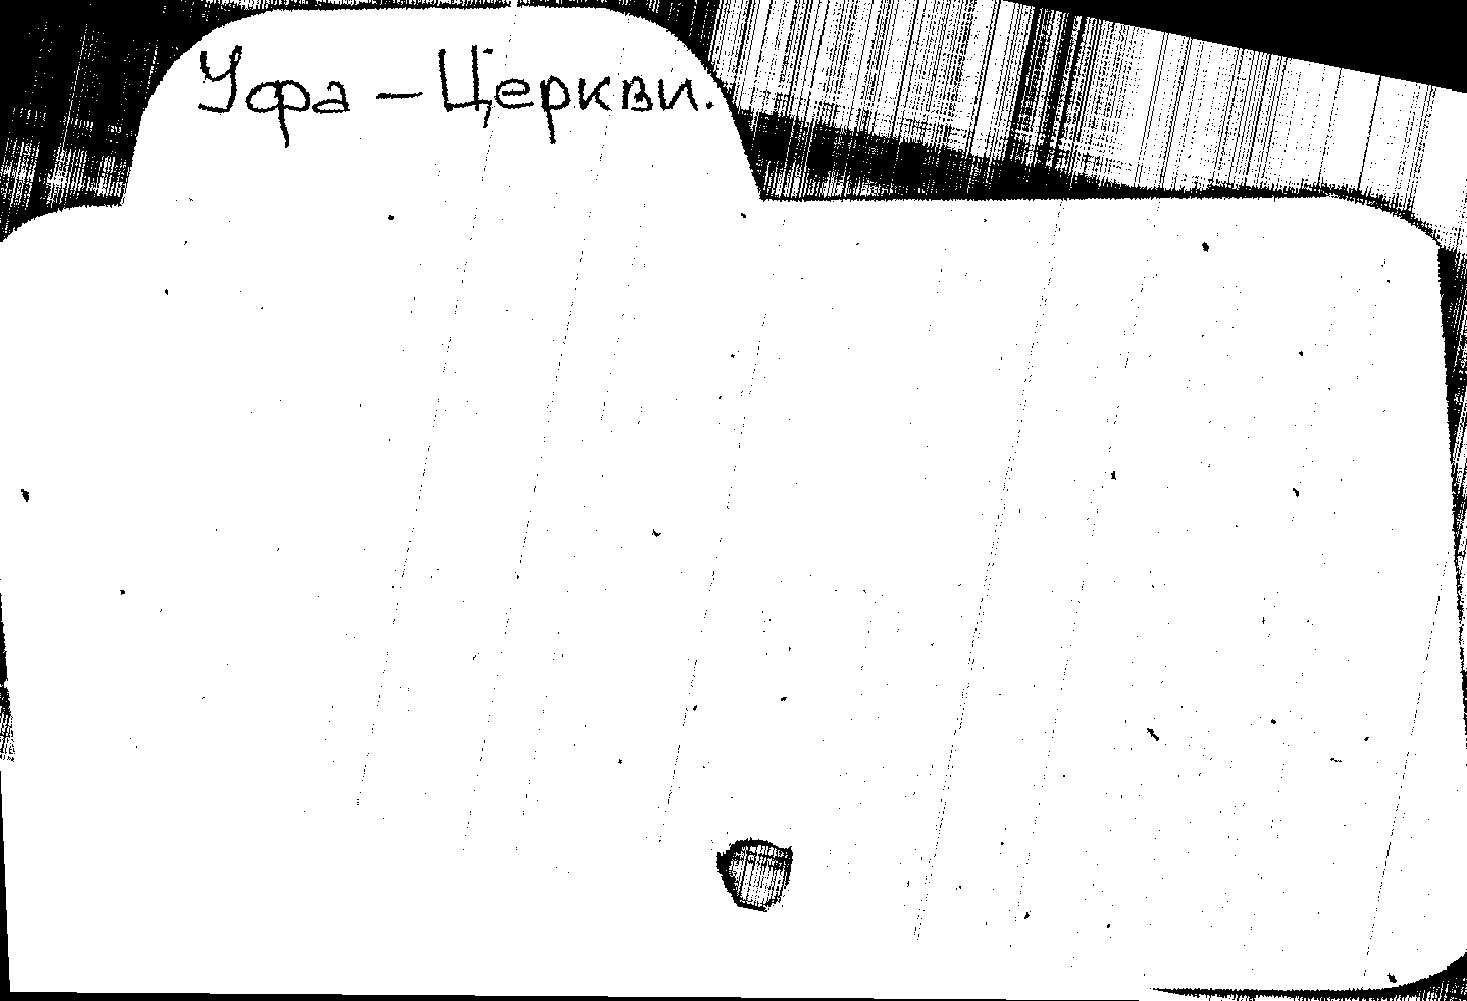 Уфа – Церкви.